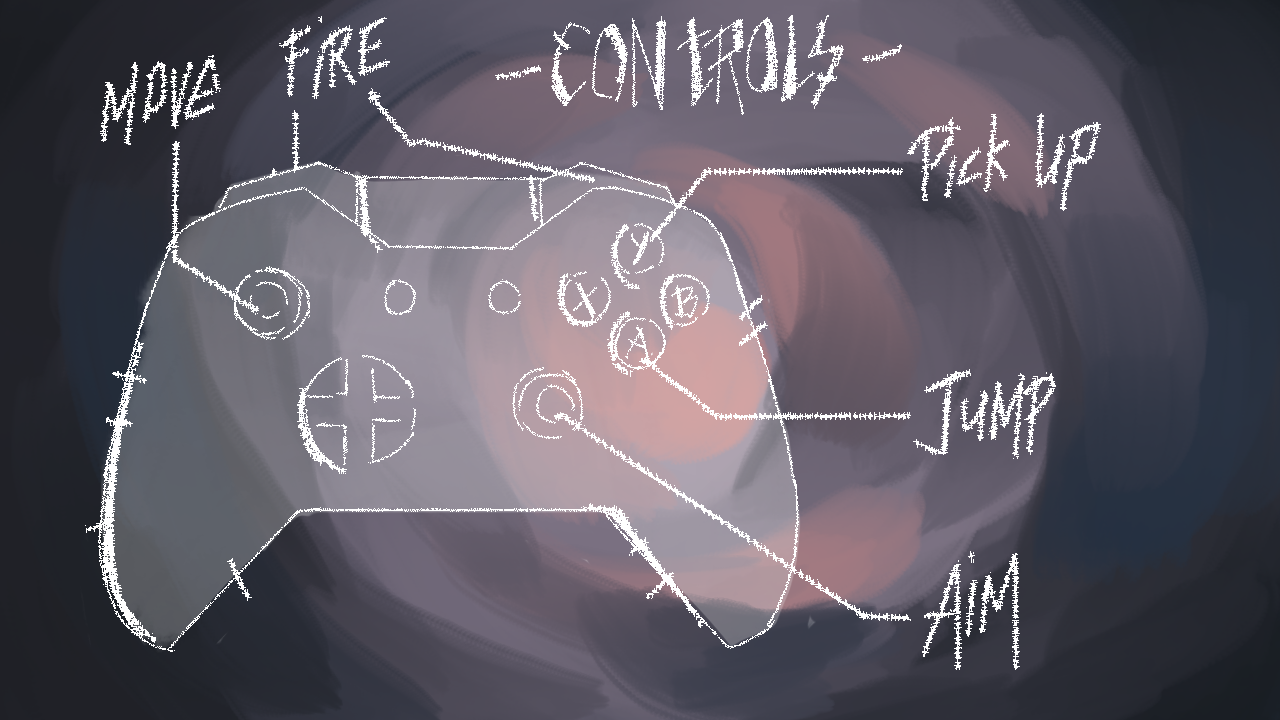 - CONTROLS -
FIRE
MOVE
PICK UP
Y
X
B
A
JUMP
AIM